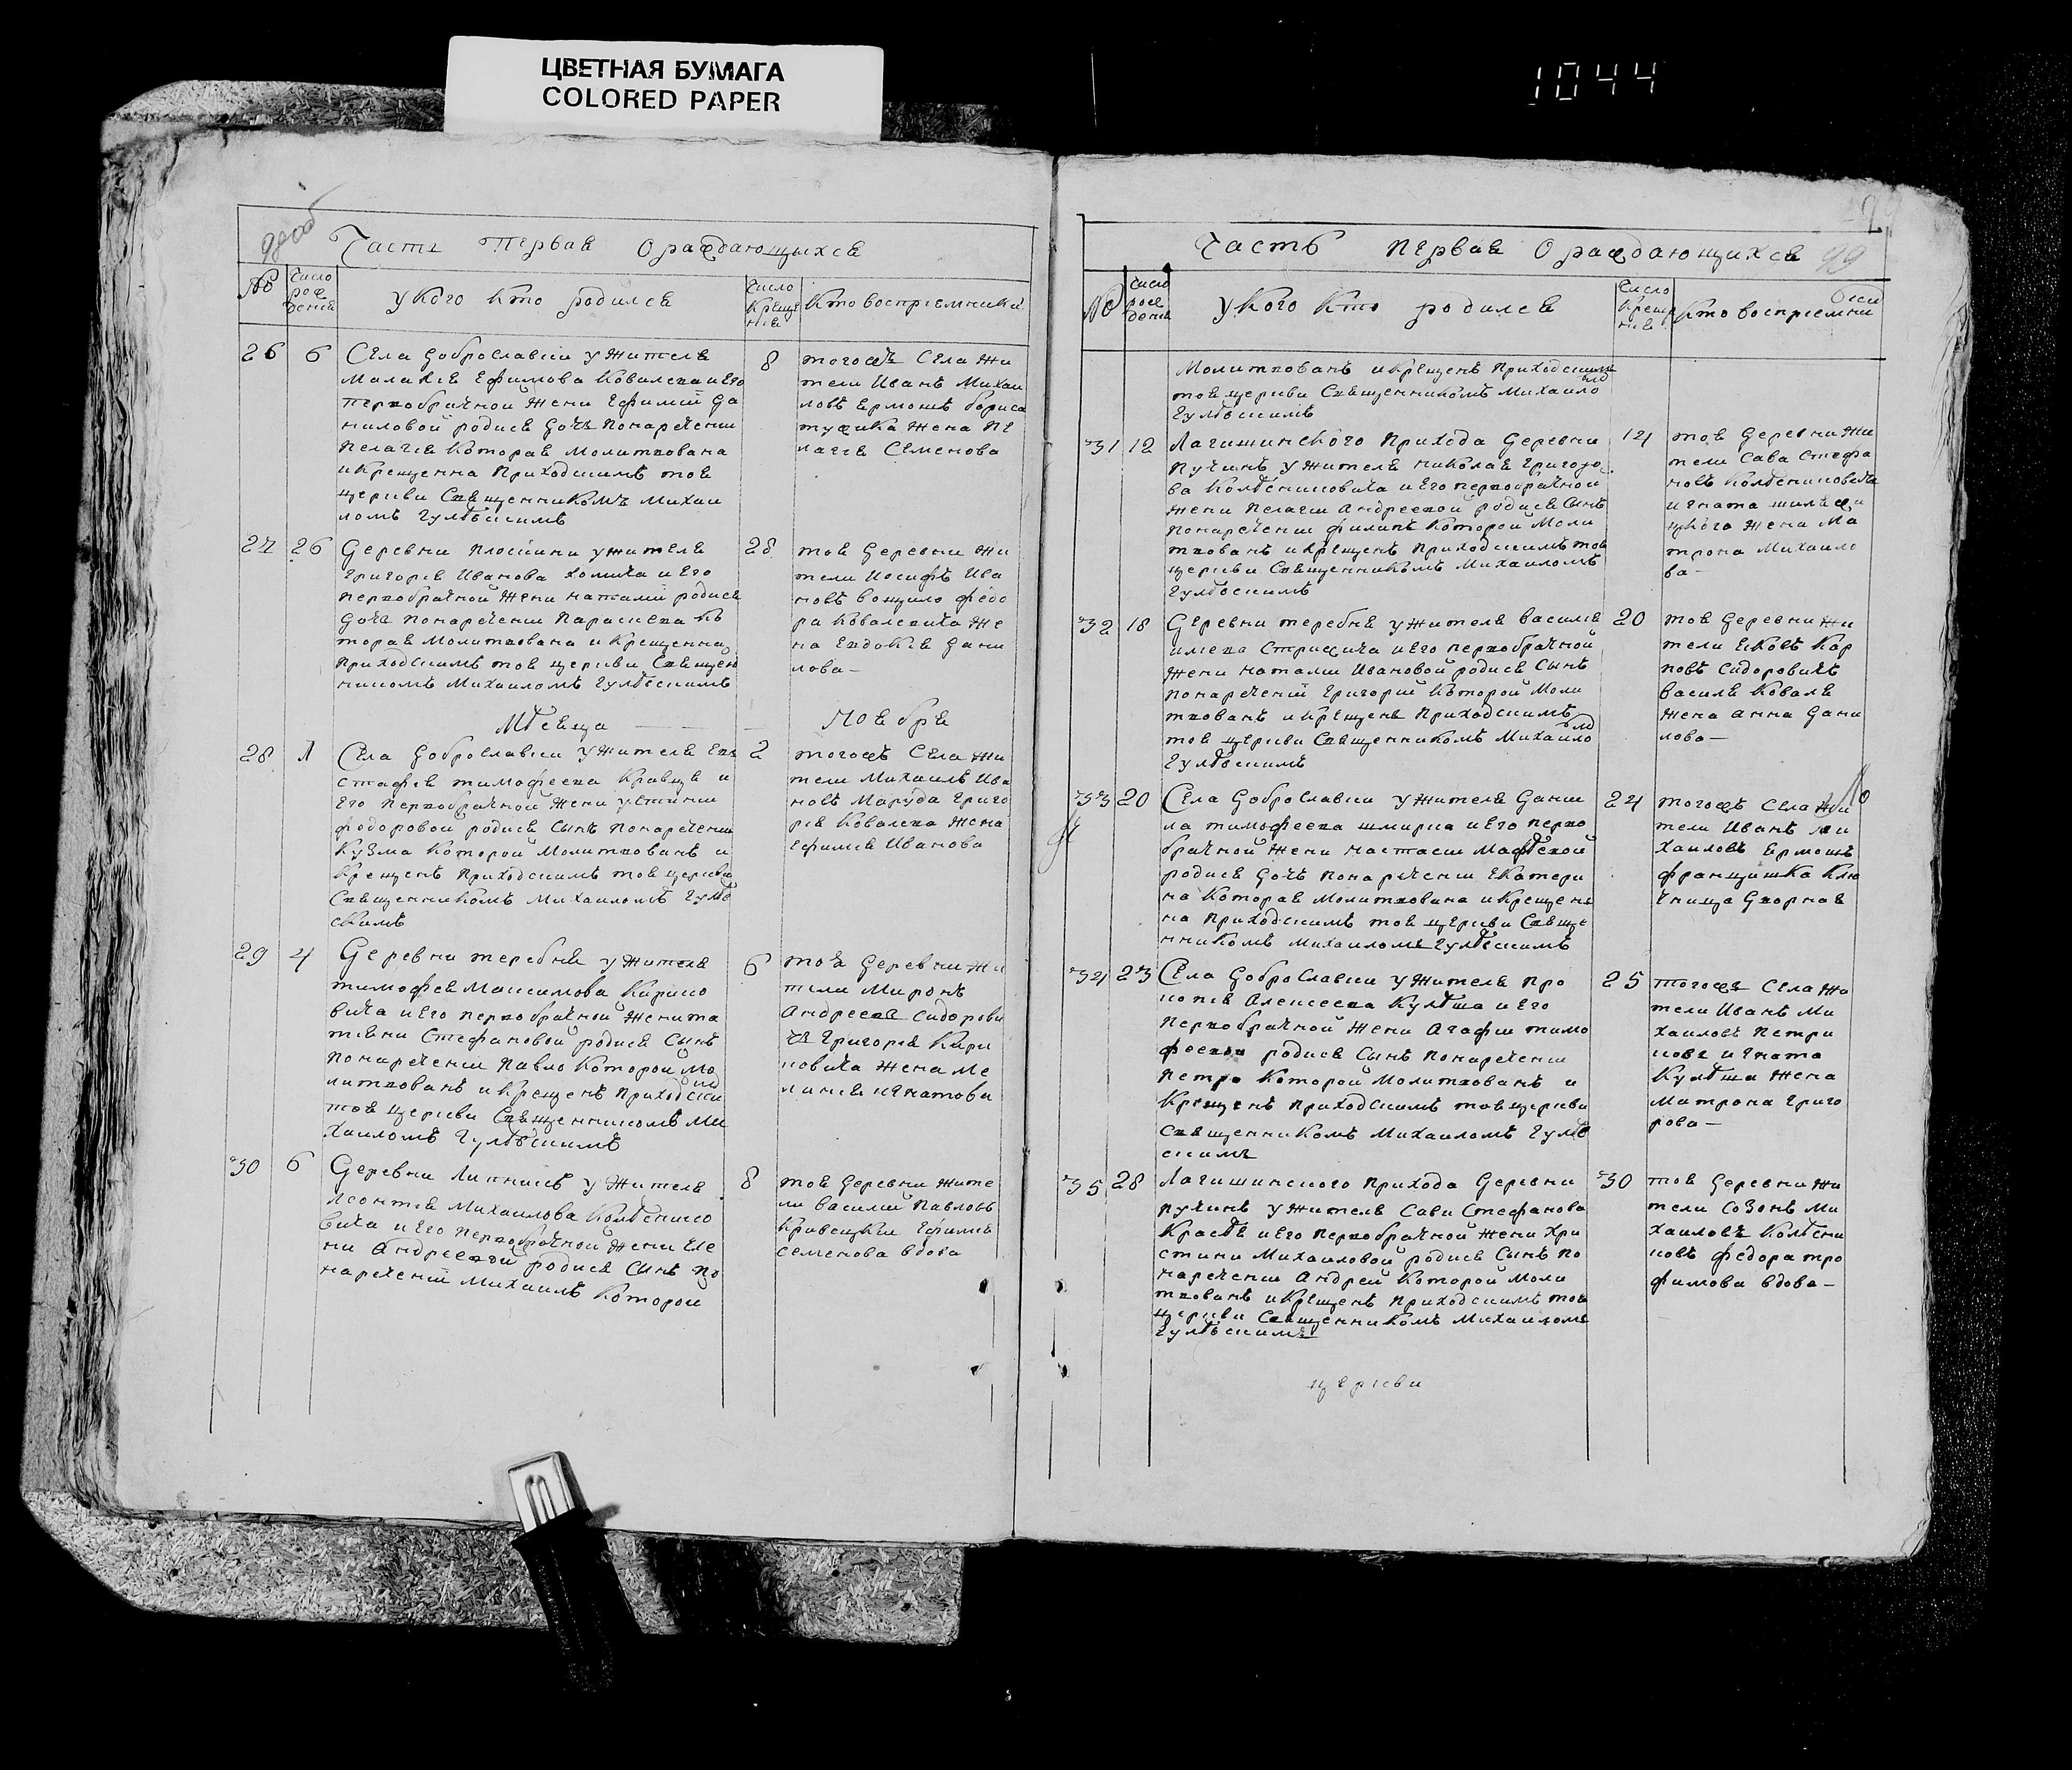 ЦВЕТНАЯ БУМАГА
COLORED PAPER
1044
98об
Часть Первая О раждающыхся
№
Число рождения
У кого кто родился
Число крещения
Кто восприемники
26 6
Села Доброславки у жителя
Малахія Ефимова Ковалева и его
первобрачной жени Ефимій Да
ниловой родися дочь понаречении
Пелагія которая молитвована
и крещенна приходскимъ тоя
церкви священникомъ Михаи
ломъ Гулевскимъ
8
тогожъ села жи
тели Иванъ Михаи
ловъ Ермошъ Бориса
жена Пе
лагія Семенова
27 26
Деревни Плоскини у жителя
Григорія Иванова Хомича и его
первобрачной жени родися
дочь понаречении Параскева ко
торая молитвована и крещенна
приходскимъ тоя церкви священ
никомъ Михаиломъ Гулевскимъ
28
тоя деревни жи
тели Иосифъ Ива
новъ Вощило Федо
ра Ковалевича же
на Евдокія Дани
лова
Мѣсяца Ноября
28 1
Села Доброславки у жителя Евъ
стафія Тимофеева Кравца и
его первобрачной жени Устинии
Федоровой родися сынъ понаречении
Кузма которой молитвованъ и
крещенъ приходскимъ тоя церкви
священникомъ Михаиломъ Гулев
скимъ
2
тогожъ села жи
тели Михаилъ Ива
новъ Маруда Григо
рія Ковалева жена
Ефимія Иванова
29 4
Деревни Теребня у жителя
Тимофея Максимова Кирико
вича и его первобрачной жени Та
тяни Стефановой родися сынъ
понаречении Павло которой мо
литвованъ и крещенъ приходски
тоя церкви священникомъ Ми
хаиломъ Гулевскимъ
6
тоя деревни жи
тели Миронъ
Андреевъ Сидорови
чъ Григорія Кири
ковича жена Ме
ланія Игнатова
30 6
Деревни Липникъ у жителя
Леонтія Михаилова Колбенико
вича и его первобрачной жени Еле
ни Андреевой родися сынъ по
наречений Михаилъ которой
8
тоя деревни жите
ли Василий Павловъ
Кривецкій Ефимія
Семенова вдова
Часть Первая О раждающихся
99
№
Число рождения
У кого кто родился
Число крещения
Кто восприемники
Молитвованъ и крещенъ приходскимъ
тоя церкви священникомъ Михаило
Гулевскимъ
31 12
Лагишинского прихода деревни
Пучинъ у жителя Николая Григоро
ва Колбениковича и его первобрачной
жени Пелагии Андреевой родися сынъ
понаречении Филипъ которой моли
твованъ и крещенъ приходскимъ тоя
церкви священникомъ Михаиломъ
Гулевскимъ
14
тоя деревни жи
тели Сава Стефа
новъ Колбениковичъ
Игната
жена Ма
трона Михаило
ва
32 18
Деревни Теребня у жителя Василія
и его первобрачной
жени Наталии Ивановой родися сынъ
понаречений Григорий которой моли
твованъ и крещенъ приходскимъ
тоя церкви священникомъ Михаило
Гулевскимъ
20
тоя деревни жи
тели Яковъ Кар
повъ Сидоровичъ
Василя Коваля
жена Анна Дани
лова
33 20
Села Доброславки у жителя Дани
ла Тимофеева Шмирка и его перво
брачной жени Настасии Мафѣевой
родися дочь понаречении Екатери
на которая молитвована и крещен
на приходскимъ тоя церкви свяще
нникомъ Михаиломъ Гулевскимъ
24
тогожъ села жи
тели Иванъ Ми
хаиловъ Ермошъ
Францишка Клю
чница дворная
34 23
Села Доброславки у жителя Про
копія Алексеева Кулеша и его
первобрачной жени Агафии Тимо
феевой родися сынъ понаречении
Петро которой молитвованъ и
крещенъ приходскимъ тоя церкви
священникомъ Михаиломъ Гулев
скимъ
25
тогожъ села жи
тели Иванъ Ми
хаиловъ Петри
ковъ Игната
Кулеша жена
Матрона Григо
рова
35 28
Лагишинского прихода деревни
Пучинъ у жителя Сави Стефанова
и его первобрачной жени Хри
стини Михаиловой родися сынъ по
наречении Андрей которой моли
твованъ и крещенъ приходскимъ тоя
церкви священникомъ Михаиломъ
Гулевскимъ
30
тоя деревни жи
тели Созонъ Ми
хаиловъ Колбени
ковъ Федора Тро
фимова вдова
церкви